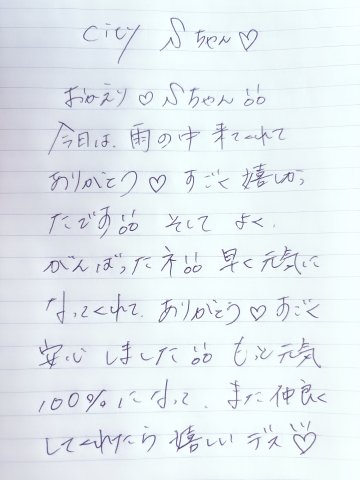 city Sちゃん♡
おかえり♡Sちゃん
今日は、雨の中 来てくれて
ありがとう♡ すごく 嬉しかっ
たです そして よく、
がんばったネ 早く元気に
なってくれて、ありがとう♡すごく
安心しました もっと元気
100%になって、また仲良く
してくれたら 嬉しいデス♡